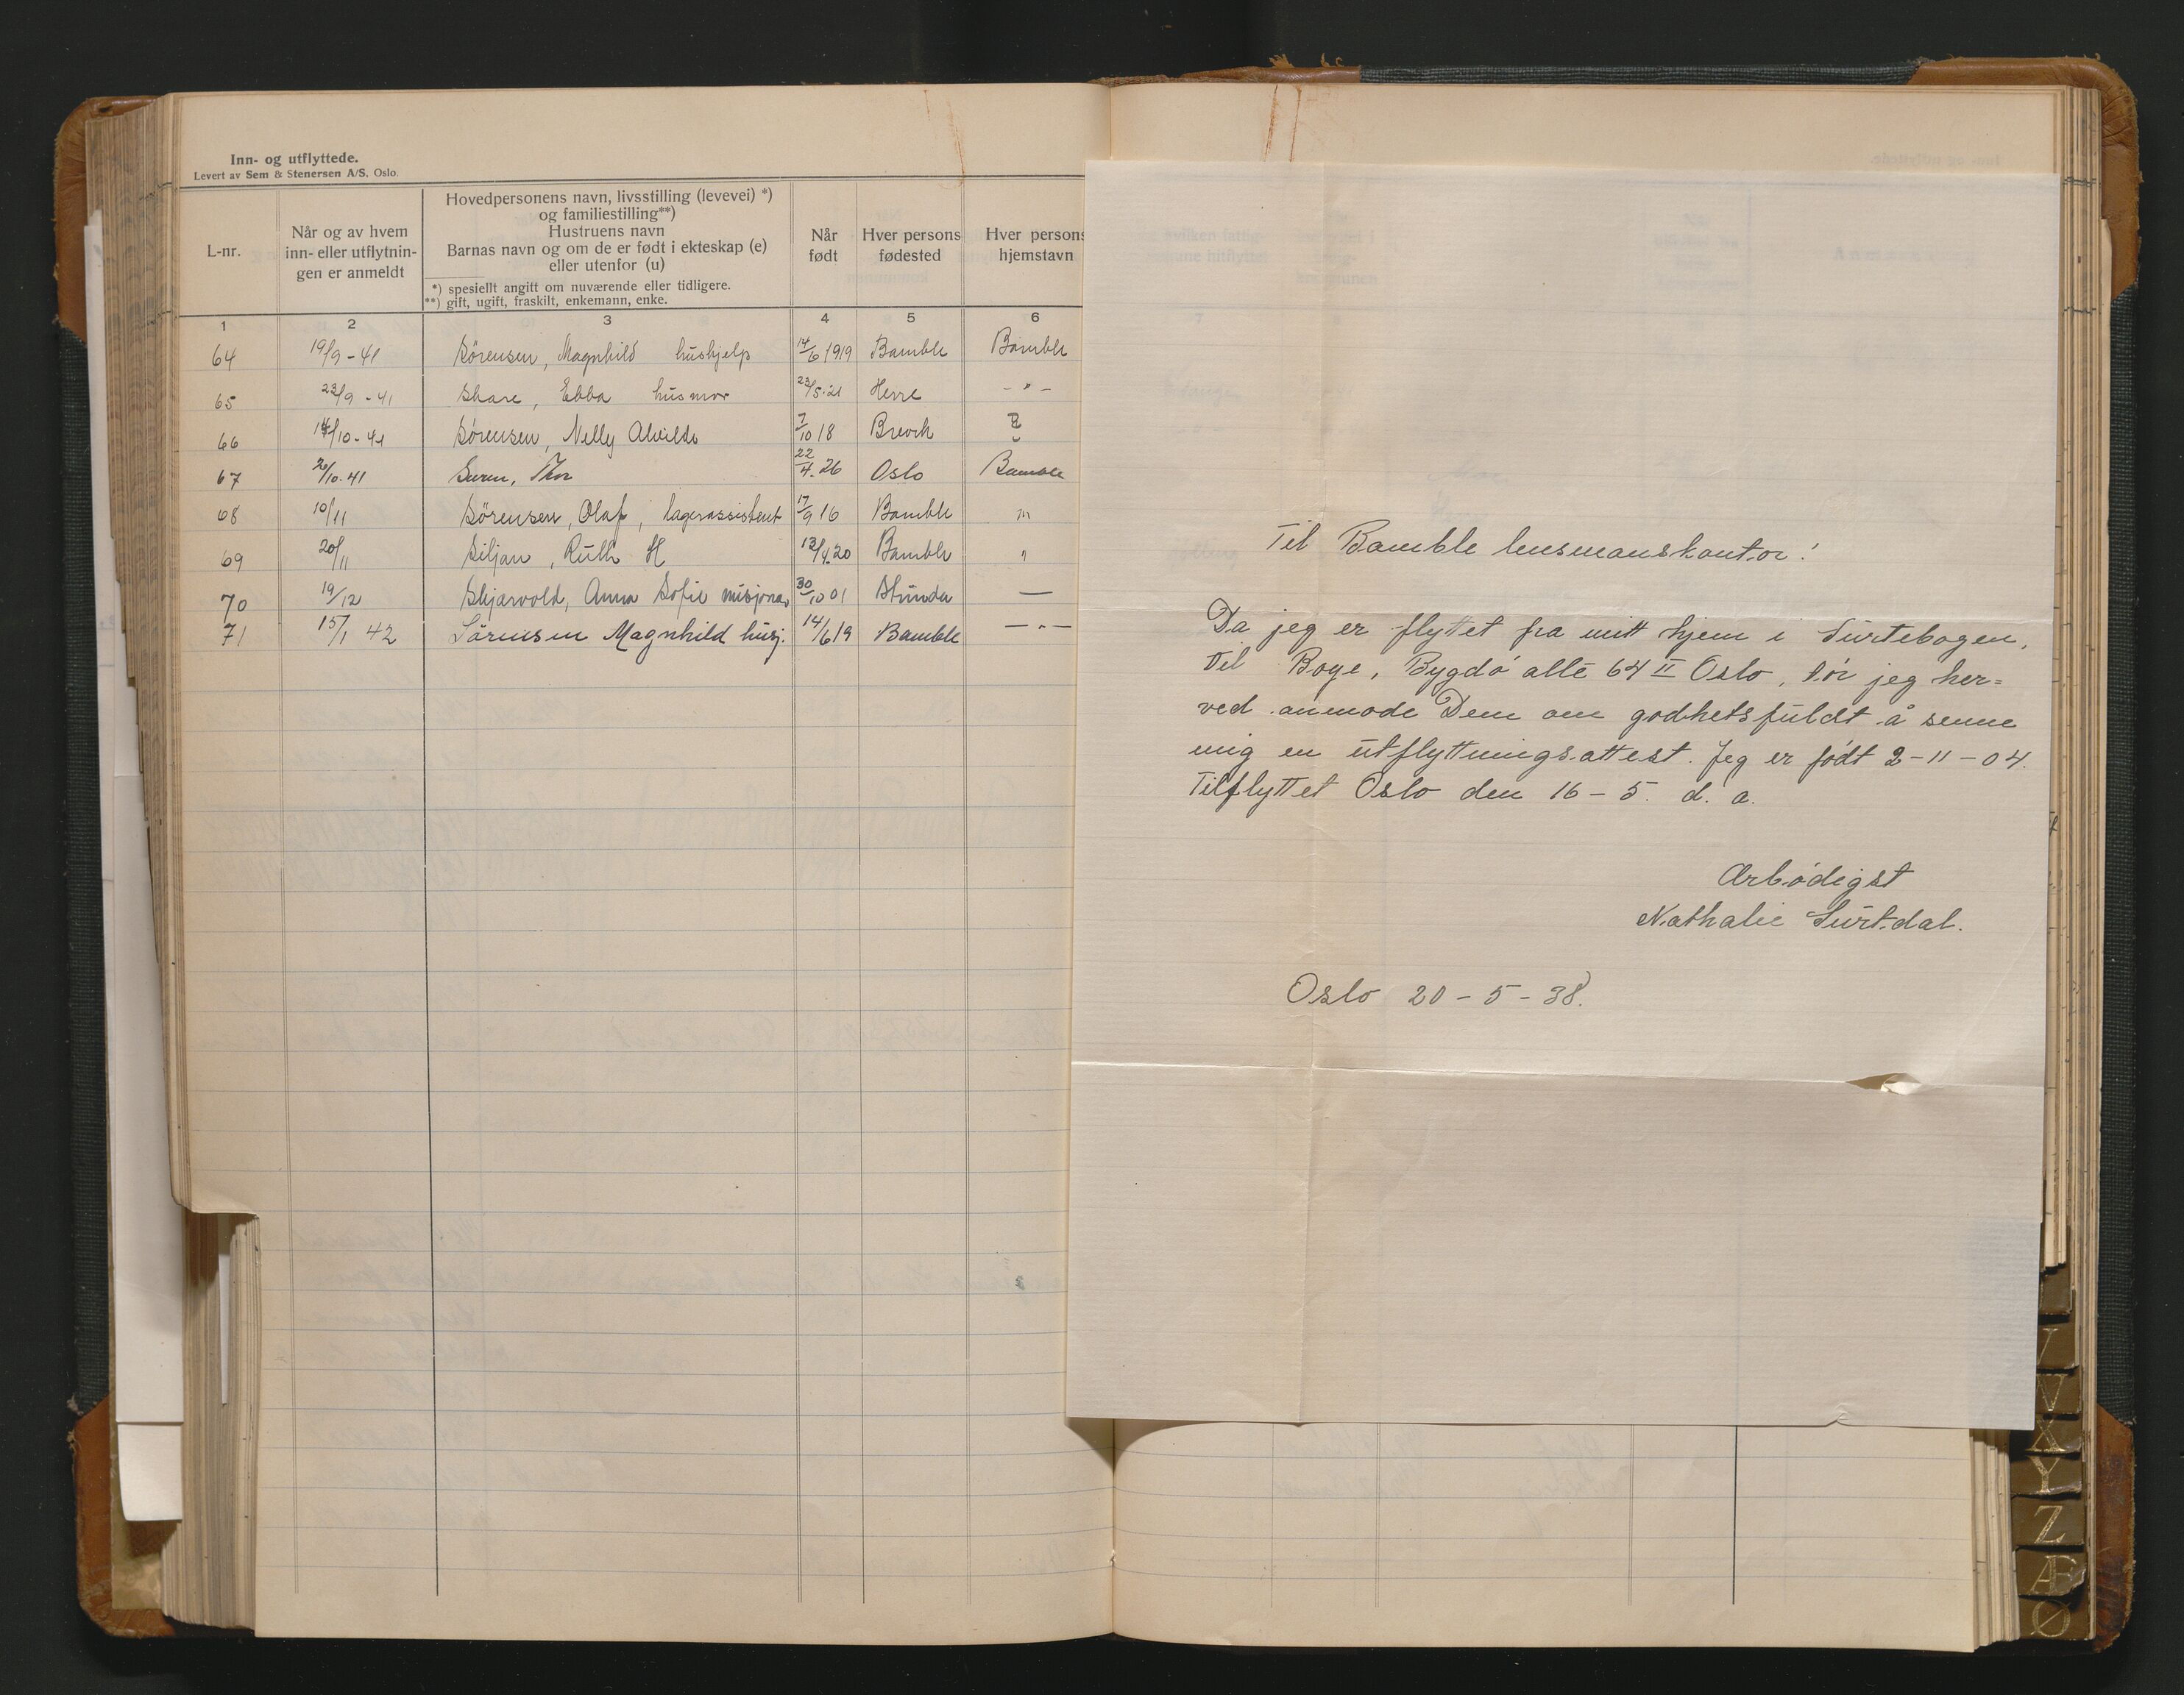 Inn- og utflyttede.
Levert av Sem & Stenersen A/S. Oslo.
L-nr.
Når og av hvem
inn- eller utflytnin-
gen er anmeldt
Hovedpersonens navn, livsstilling (levevei) *)
og familiestilling**)
Hustruens navn
Barnas navn og om de er født i ekteskap (e)
eller utenfor (u)
*) spesiellt angitt om nuværende eller tidligere.
**) gift, ugift, fraskilt, enkemann, enke.
Når
født
Hver persons
fødested
Hver persons
hjemstavn
1 2 3 4 5 6
64 19/9 - 41 Sörensen, Magnhild hushjelp 14/6 1919 Bamble Bamble
65 23/9 - 41 Skare, Ebba husmor 23/5.21 Herre - " -
66 14/10 - 41 Sörensen, Nelly Alvilde 7/10 18 Brevik
67 20/10. 41 Thor 22/4. 26 Oslo Bamble
68 10/11 Sörensen, Olaf, lagerassistent 17/9 16 Bamble "
69 20/11 Siljan, Ruth H 13/4.20 Bamble "
70 19/12 Skjærvold, Anna Sofie misjonær 30/10 01 —
71 15/1 42 Sörensen Magnhild husj. 14/6 19 Bamble — " —
Til Bamble lensmanskontor!
Da jeg er flyttet fra mitt hjem i Surtebogen,
til Boye, Bygdö allé 64 II Oslo, tör jeg her=
ved anmode Dem om godhetsfuldt å senne
mig en utflyttningsattest. Jeg er født 2-11-04.
Tilflyttet Oslo den 16 - 5. d. a.
Ærbödigst
Nathalie Surtdal.
Oslo 20 - 5 - 38.
V
V
X
Y
Z
Æ
Ø